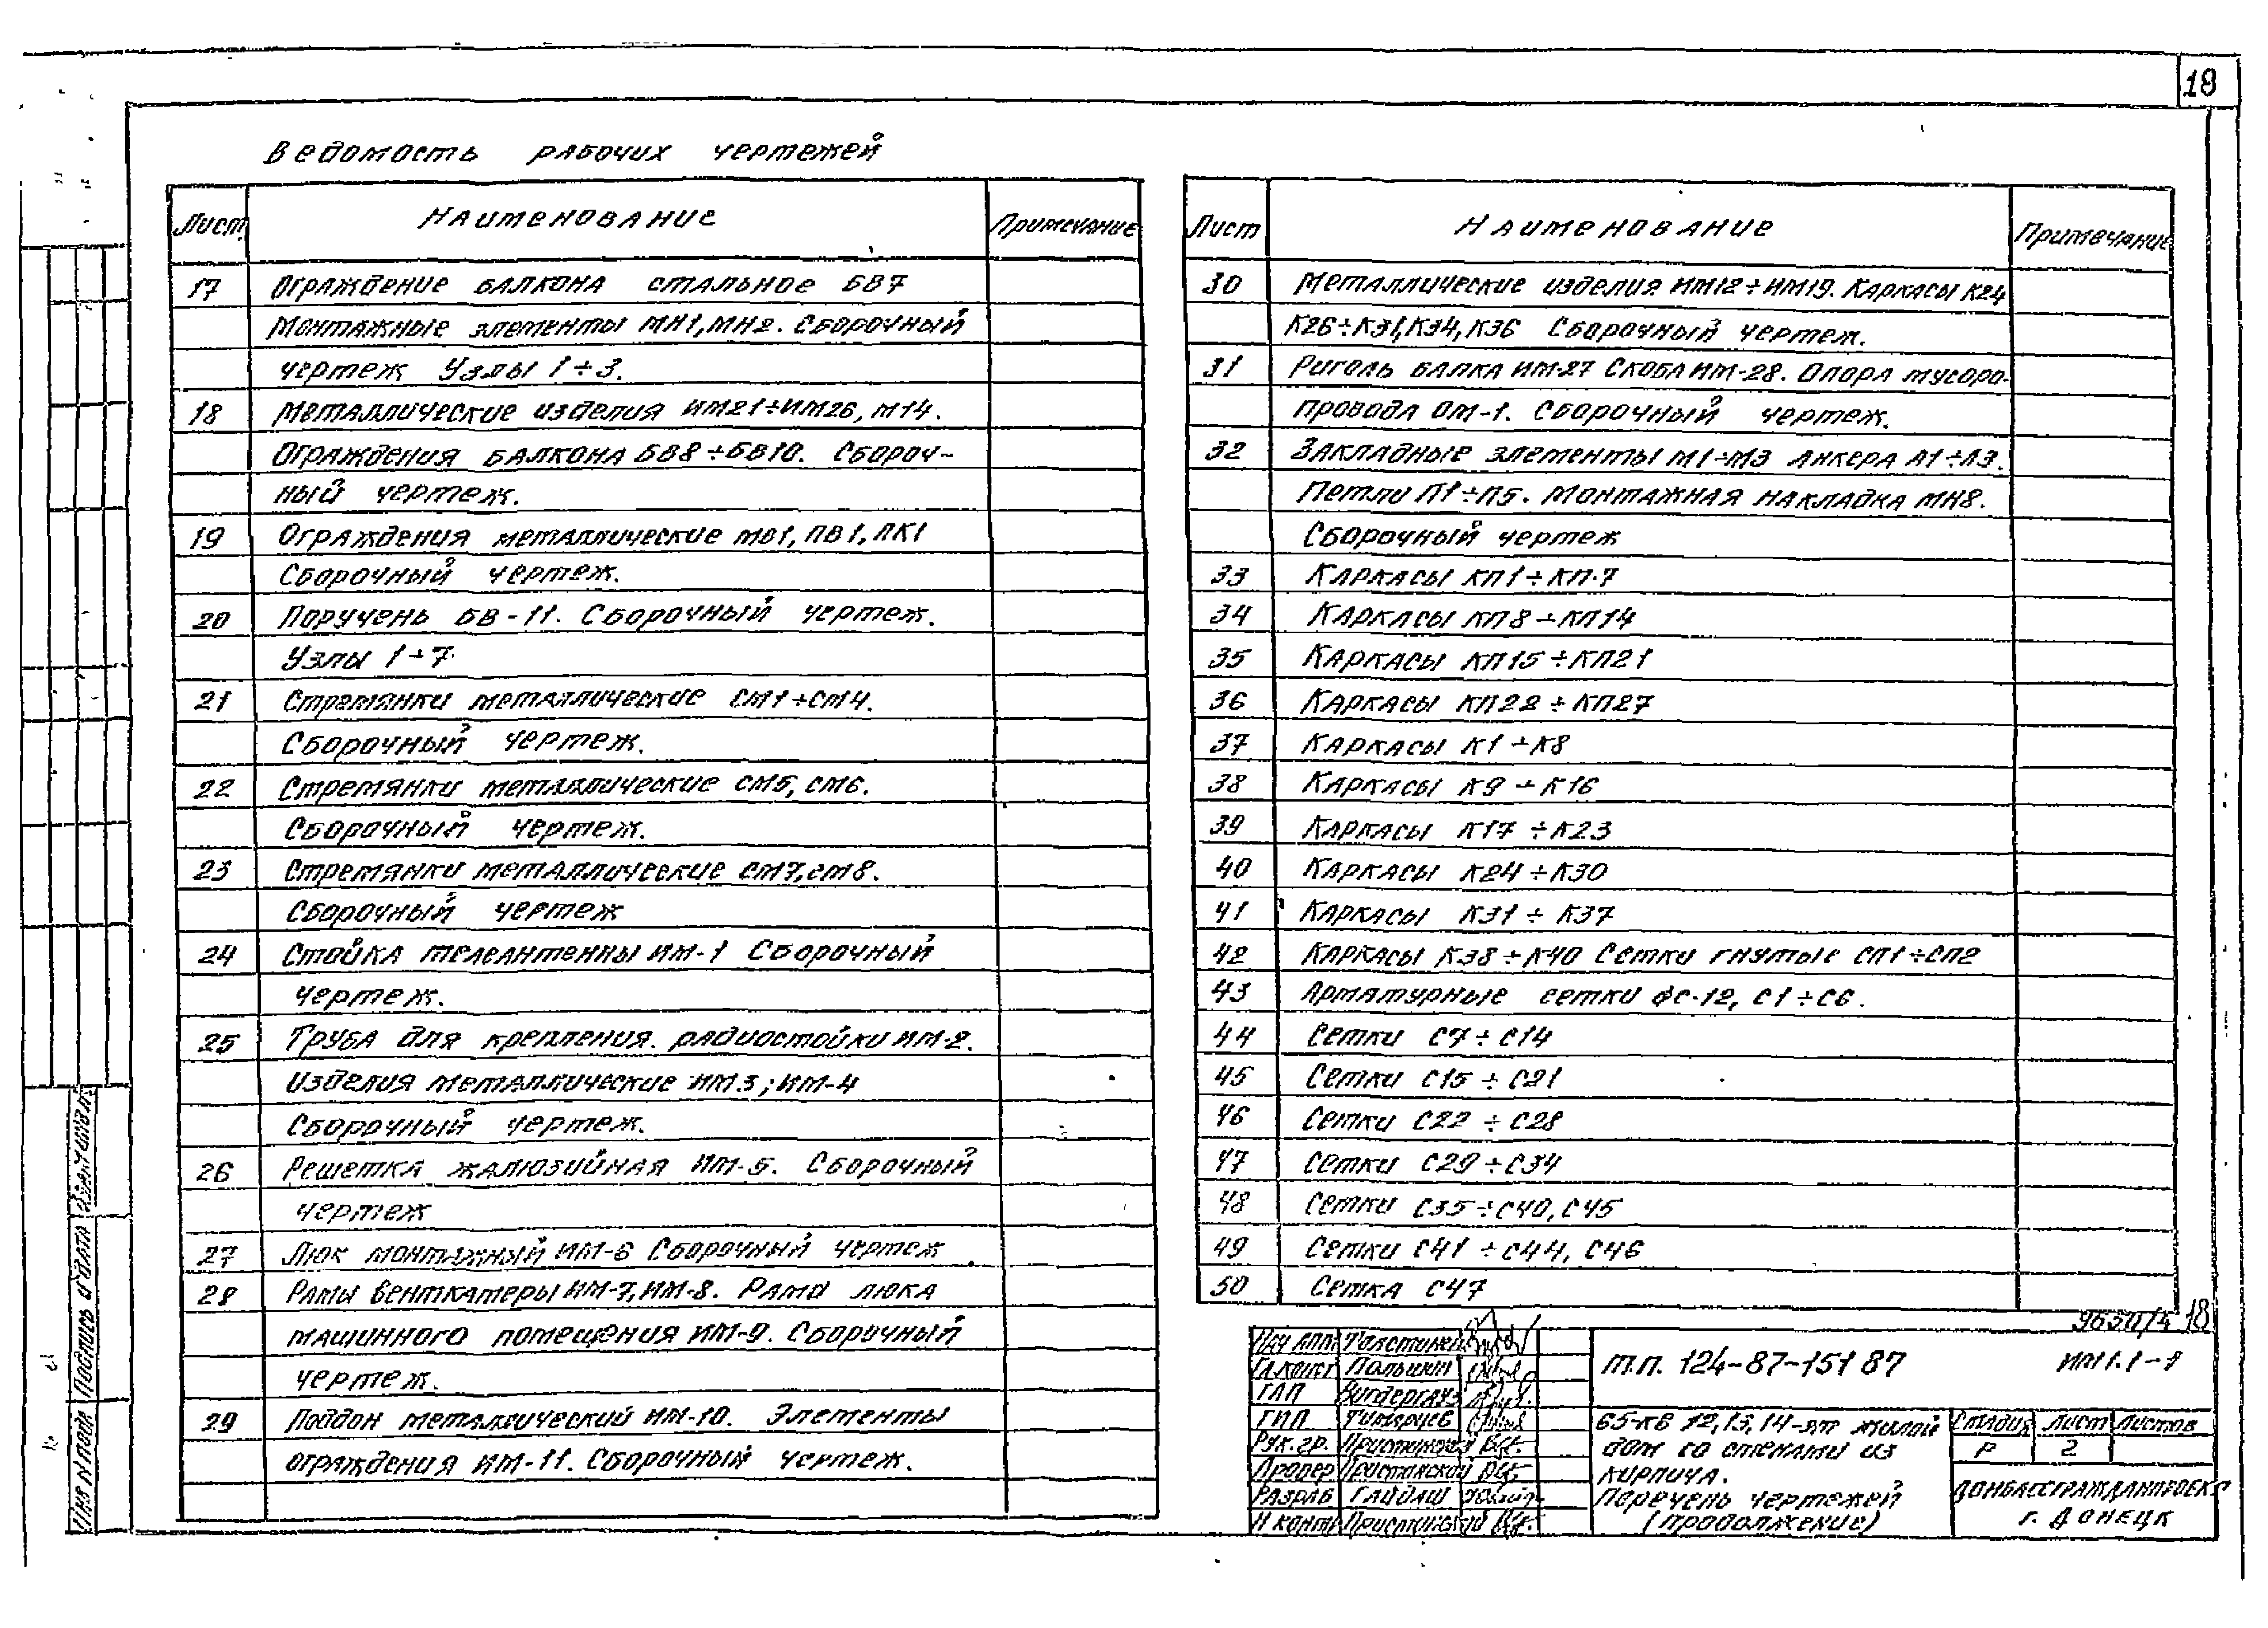 18
Ведомость рабочих чертежей
Лист Наименование Примечание
17 Ограждение балкона стальное БВ7
Монтажные элементы МН1, МН2. Сборочный
чертеж Узлы 1÷3.
18 Металлические изделия ИМ21÷ИМ26, М14.
Ограждения балкона БВ8÷БВ10. Сбороч-
ный чертеж.
19 Ограждения металлические МВ1, ПВ1, ПК1
Сборочный чертеж.
20 Поручень БВ-11. Сборочный чертеж.
Узлы 1÷7.
21 Стремянки металлические СМ1÷СМ4.
Сборочный чертеж.
22 Стремянки металлические СМ5, СМ6.
Сборочный чертеж.
23 Стремянки металлические СМ7, СМ8.
Сборочный чертеж
24 Стойка телеантенны ИМ-1 Сборочный
чертеж.
25 Труба для крепления радиостойки ИМ-2.
Изделия металлические ИМ.3; ИМ-4
Сборочный чертеж.
26 Решетка жалюзийная ИМ-5. Сборочный
чертеж
27 Люк монтажный ИМ-6 Сборочный чертеж
28 Рамы венткамеры ИМ-7, ИМ-8. Рама люка
машинного помещения ИМ-9. Сборочный
чертеж.
29 Поддон металлический ИМ-10. Элементы
ограждения ИМ-11. Сборочный чертеж.
Лист Наименование Примечание
30 Металлические изделия ИМ12÷ИМ19. Каркасы К24
К26÷К31, К34, К36 Сборочный чертеж.
31 Ригель балка ИМ-27 Скоба ИМ-28. Опора мусоро-
провода ОМ-1. Сборочный чертеж.
32 Закладные элементы М1÷М3 Анкера А1÷А3.
Петли П1÷П5. Монтажная накладка МН8.
Сборочный чертеж
33 Каркасы КП1÷КП-7
34 Каркасы КП8÷КП14
35 Каркасы КП15÷КП21
36 Каркасы КП22÷КП27
37 Каркасы К1÷К8
38 Каркасы К9÷К16
39 Каркасы К17÷К23
40 Каркасы К24÷К30
41 Каркасы К31÷К37
42 Каркасы К38÷К40 Сетки гнутые СП1÷СП2
43 Арматурные сетки ФС-12, С1÷С6.
44 Сетки С7÷С14
45 Сетки С15÷С21
46 Сетки С22÷С28
47 Сетки С29÷С34
48 Сетки С35÷С40, С45
49 Сетки С41÷С44, С46
50 Сетка С47
9650/4 18
т.п. 124-87-151 87
Гл.конст Полышин
ГАП Вигдергауз
ГИП
Рук.гр.
Провер
Разраб Гайдаш
Н контр
65-кв 12,13,14-эт жилой
дом со стенами из
кирпича.
Перечень чертежей
(продолжение)
Стадия Лист Листов
Р 2
Донбассгражданпроект
г. Донецк
Инв N подл Подпись и дата